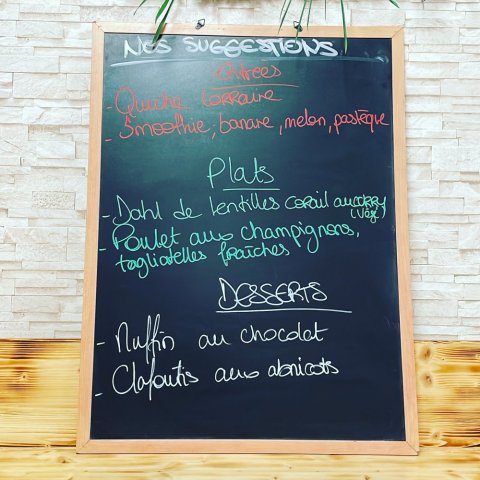 NOS SUGGESTIONS
Entrées
- Quiche Lorraine
- Smoothie, banane, melon, pastèque
Plats
- Dahl de lentilles corail au curry
(Végé)
- Poulet aux champignons,
tagliatelles fraîches
DESSERTS
- Muffin au chocolat
- Clafoutis aux abricots